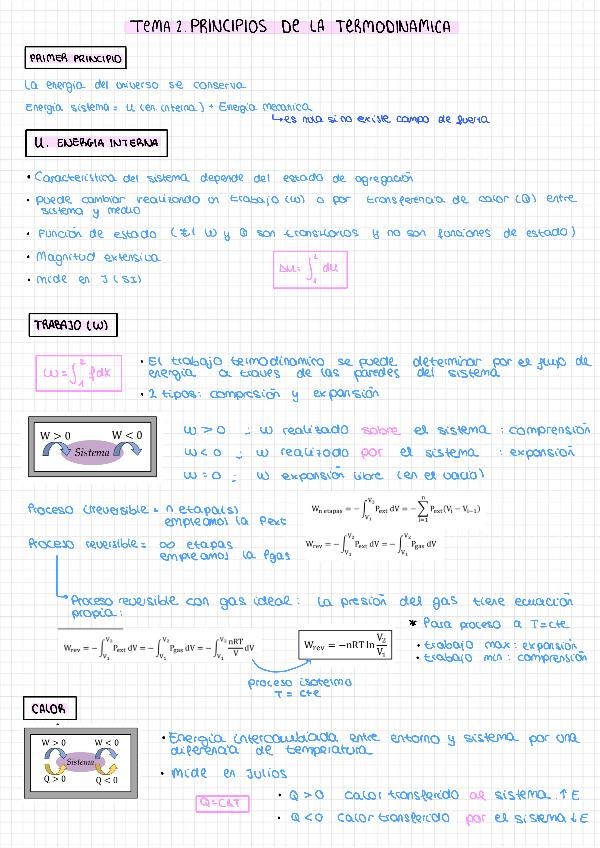 TEMA 2. PRINCIPIOS DE LA TERMODINAMICA
PRIMER PRINCIPIO
La energia del universo se conserva
Energia sistema = U (en. interna) + Energia mecanica
↳ es nula si no existe campo de fuerza
U. ENERGIA INTERNA
• Caracteristica del sistema depende del estado de agregación
• puede cambiar realizando un trabajo (W) o por transferencia de calor (Q) entre
sistema y medio
• Función de estado (≠! W y Q son transitorios y no son funciones de estado)
• Magnitud extensiva
• mide en J (SI)
ΔU = ∫₁² dU
TRABAJO (W)
W = ∫₁² f dx
• El trabajo termodinamico se puede determinar por el flujo de
energia a traves de las paredes del sistema
• 2 tipos: compresión y expansión
W > 0 W < 0
Sistema
W > 0 : W realizado sobre el sistema : comprensión
W < 0 : W realizado por el sistema : expansión
W = 0 : W expansión libre (en el vacio)
Proceso irreversible = n etapa(s)
empleamos la Pext
W n etapas = −∫V₁V₂ Pext dV = −∑ᵢ₌₁ⁿ Pext(Vᵢ − Vᵢ₋₁)
Proceso reversible = ∞ etapas
empleamos la Pgas
Wrev = −∫V₁V₂ Pext dV = −∫V₁V₂ Pgas dV
↳ Proceso reversible con gas ideal: la presión del gas tiene ecuación
propia:
Wrev = −∫V₁V₂ Pext dV = −∫V₁V₂ Pgas dV = −∫V₁V₂ nRT/V dV
Wrev = −nRT ln V₂/V₁
proceso isotermo
T = cte
* Para proceso a T=cte
• trabajo max: expansión
• trabajo min: comprensión
CALOR
W > 0 W < 0
Sistema
Q > 0 Q < 0
• Energia intercambiada entre entorno y sistema por una
diferencia de temperatura
• Mide en Julios
Q=CΔT
• Q > 0 calor transferido al sistema ↑ E
• Q < 0 calor transferido por el sistema ↓ E